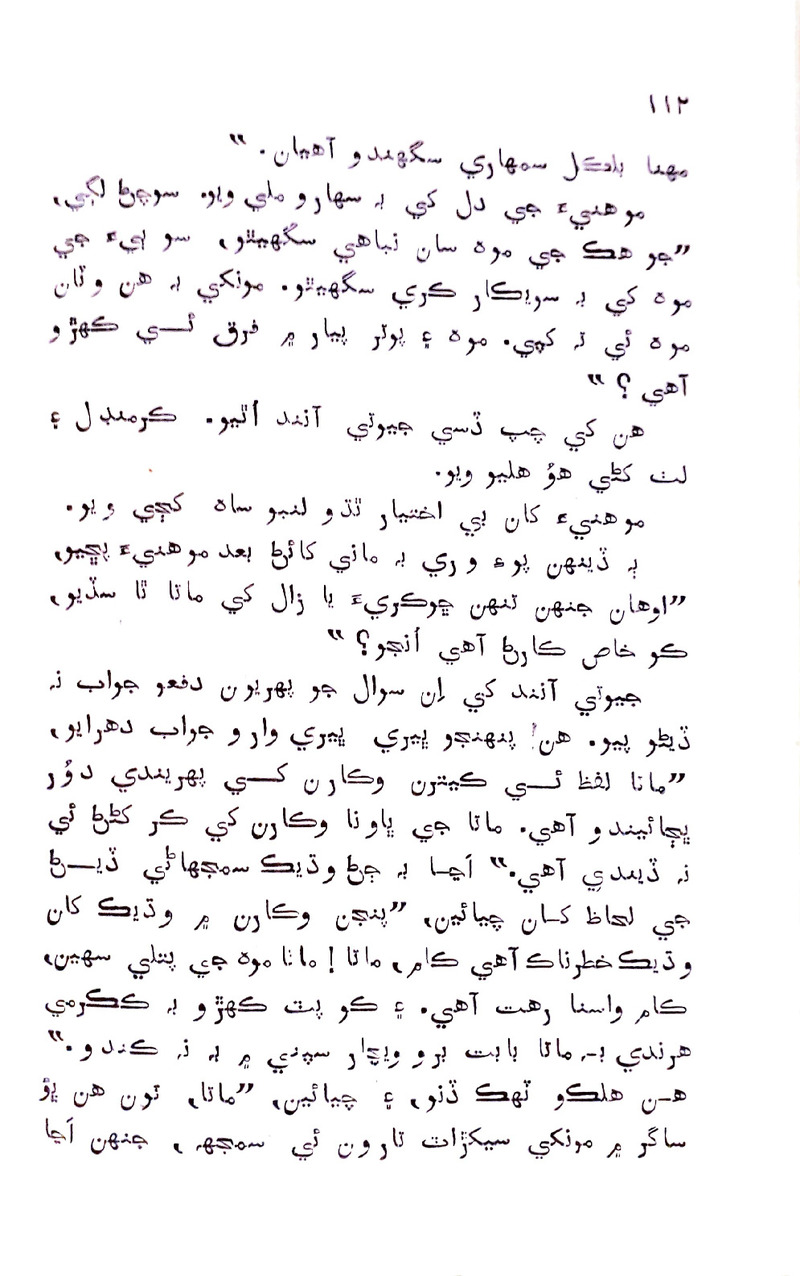 ١١٢
مهنا بلڪل سمهاري سگهندو آهيان. “
موهنيءَ جي دل کي بہ سهارو ملي ويو. سوچڻ لڳي،
”جو هڪ جي موہ سان نباهي سگهيٿو، سو ٻيءَ جي
موہ کي بہ سويڪار ڪري سگهيٿو. مونکي بہ هن وٽان
موہ ئي تہ کپي. موہ ۽ پوتر پيار ۾ فرق ئي ڪهڙو
آهي؟ “
هن کي چپ ڏسي جيوتي آنند اُٿيو. ڪرمنڊل ۽
لٺ کڻي هوُ هليو ويو.
موهنيءَ کان بي اختيار ٿڌو لنبو ساہ کڄي ويو.
ٻہ ڏينهن پوءِ وري بہ ماني کائڻ بعد موهنيءَ پڇيو،
”اوهان جنهن تنهن ڇوڪريءَ يا زال کي ماتا ٿا سڏيو،
ڪو خاص ڪارڻ آهي اُنجو؟ “
جيوتي آنند کي اِن سوال جو پهريون دفعو جواب نہ
ڏيڻو پيو. هن پنهنجو ڀيري ڀيري وارو جواب دهرايو،
”ماتا لفظ ئي ڪيترن وڪارن کي پهريندي دوُر
ڀڄائيندو آهي. ماتا جي ڀاونا وڪارن کي ڪر کڻڻ ئي
نہ ڏيندي آهي.“ اَڃا بہ ڄڻ وڌيڪ سمجهاڻي ڏيڻ
جي لحاظ کان چيائين، ”پنجن وڪارن ۾ وڌيڪ کان
وڌيڪ خطرناڪ آهي ڪام، ماتا! ماتا موہ جي پتلي سهين،
ڪام واسنا رهت آهي. ۽ ڪو پٽ ڪهڙو بہ ڪڪرمي
هرندي بہ ماتا بابت برو ويچار سپني ۾ بہ نہ ڪندو.“
هن هلڪو ٽهڪ ڏنو، ۽ چيائين، ”ماتا، تون هن ڀوَ
ساگر ۾ مونکي سيکڙاٽ تارون ئي سمجهہ، جنهن اَڃا